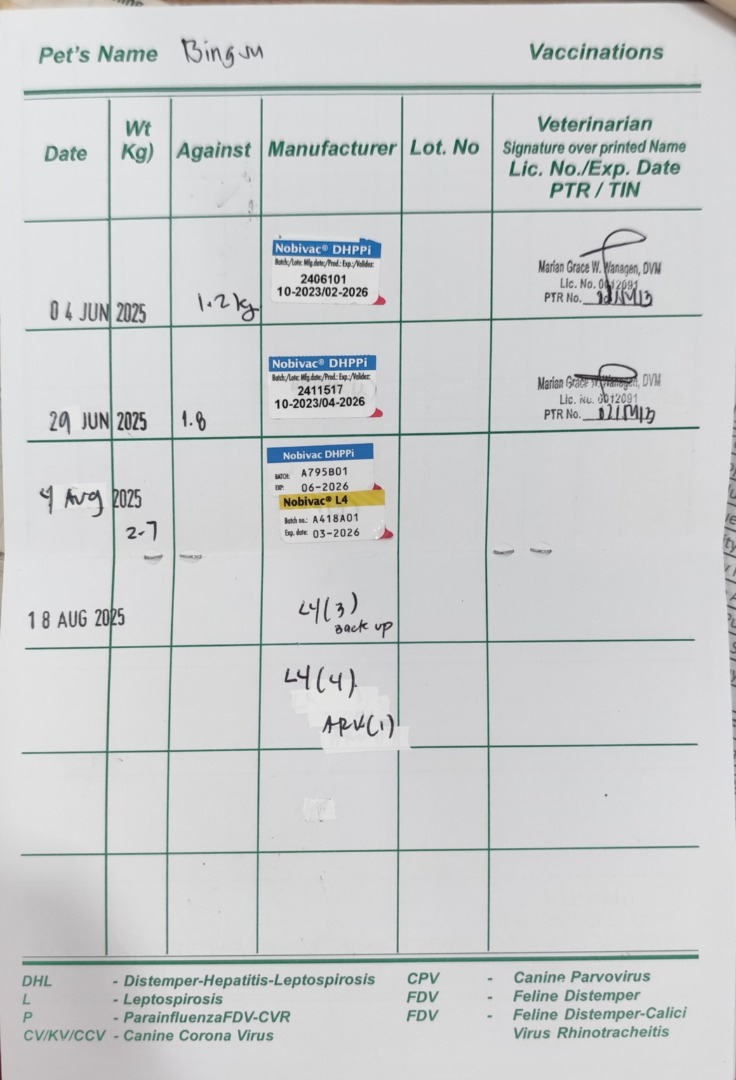 Pet's Name Bingsu
Vaccinations
Date
Wt Kg)
Against
Manufacturer
Lot. No
Veterinarian
Signature over printed Name
Lic. No./Exp. Date
PTR / TIN
04 JUN 2025
1.2 kg
Nobivac® DHPPi
Batch:/Lote: Mfg.date:/Prod.: Exp.:/Validez:
2406101
10-2023/02-2026
Marian Grace W. Wanagen, DVM
Lic. No. 0012091
PTR No.
29 JUN 2025
1.8
Nobivac® DHPPi
Batch:/Lote: Mfg.date:/Prod.: Exp.:/Validez:
2411517
10-2023/04-2026
Marian Grace W. Wanagen, DVM
Lic. No. 0012091
PTR No.
4 Aug 2025
2.7
Nobivac DHPPi
BATCH: A795B01
EXP: 06-2026
Nobivac® L4
Batch no.: A418A01
Exp. date: 03-2026
18 AUG 2025
L4(3)
Back up
L4(4)
ARV(1)
DHL - Distemper-Hepatitis-Leptospirosis
L - Leptospirosis
P - ParainfluenzaFDV-CVR
CV/KV/CCV - Canine Corona Virus
CPV - Canine Parvovirus
FDV - Feline Distemper
FDV - Feline Distemper-Calici
Virus Rhinotracheitis